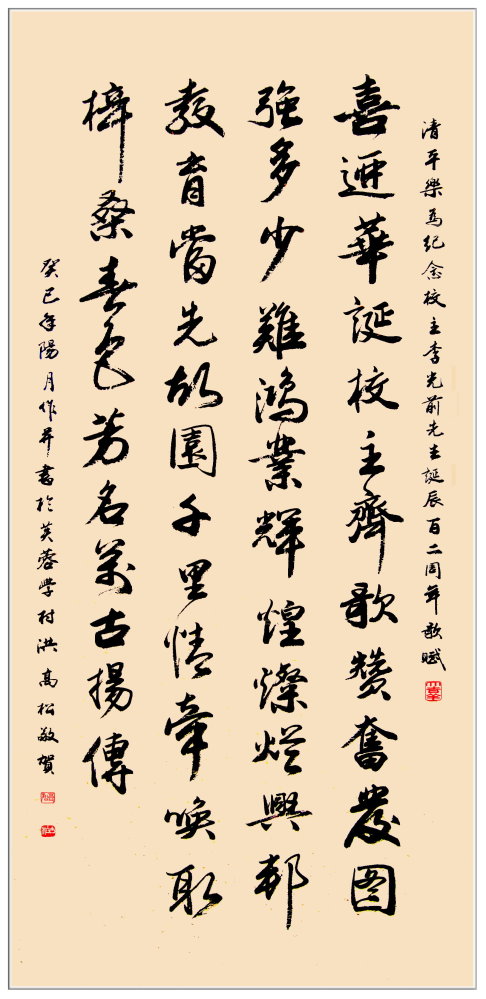 清平樂為紀念校主李光前先生誕辰百二周年歌賦
喜迎華誕校主齊歌贊奮發图
強多少難鴻業輝煌燦爛興邦
教育當先故園千里情牽喚取
梓桑春色芳名萬古揚傳
癸巳年陽月作并書於芙蓉學村洪高松敬賀